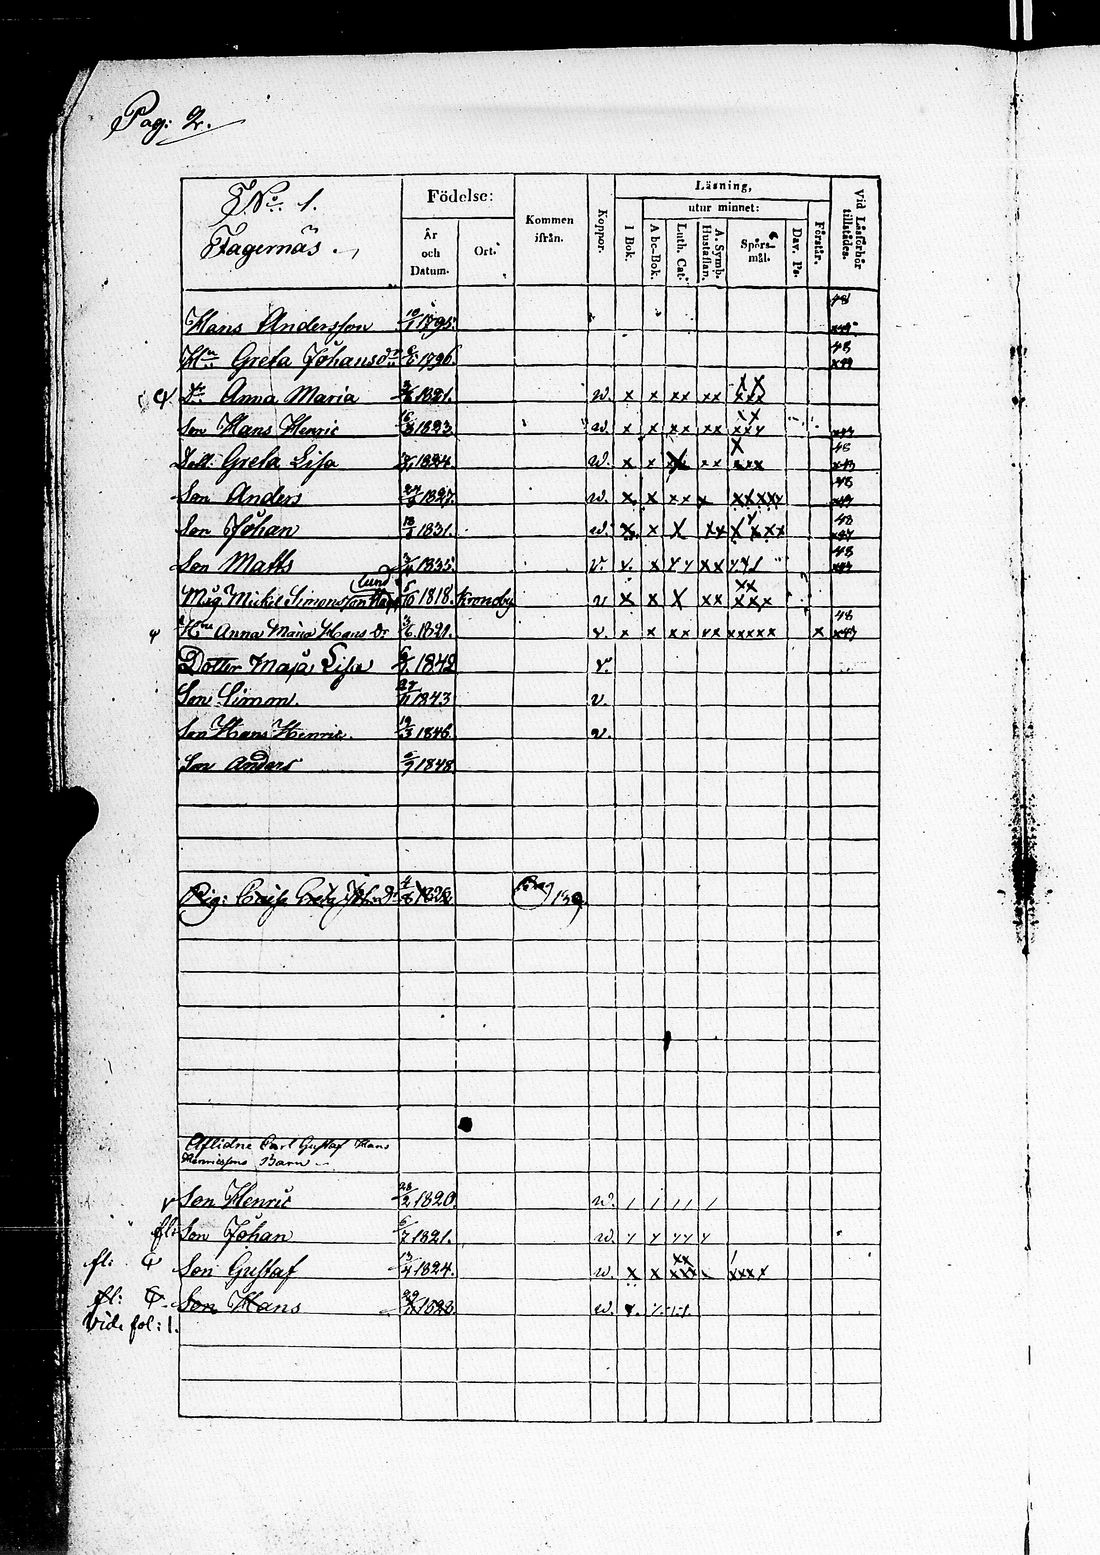 Pag: 2.
No. 1.
Fagernäs
Födelse:
År och Datum.
Ort.
Kommen ifrån.
Koppor.
Läsning,
utur minnet:
I Bok.
Abc-Bok.
Luth. Cat.
A. Symb. Hustaflan.
Spörs-mål.
Dav. Ps.
Förstår.
Vid Läsförhör tillstädes.
Hans Andersson 1795. 48
Hru Greta Johansdr 1796. 48
Dr Anna Maria 1821. v. x x xx xx xxx
Son Hans Henric 1823. v. x x xx xx xxx
Dott: Greta Lisa 1824. v. x x x xx xxx 48
Son Anders 1827. v. x x xx x xxxxx 48
Son Johan 1831. v. x x x xx x xxx 48
Son Matts 1835. v. x x xx 48
Måg Mickel Simonsson lund 5/10 1818. Kronoby v x x x xx xxx
Hru Anna Maria Hans Dr 3/6 1821. v. x x xx xx xxxxx x 48
Dotter Maja Lisa 1842 v.
Son Simon. 27/11 1843 v.
Son Hans Henric. 19/3 1846. v.
Son Anders 1848.
Pig: Caisa Greta Joh: Dr 1822
Aflidne Carl Gustaf Hans
Henricssons Barn
Son Henric 28/2 1820. v. / / / / /
fl: Son Johan 6/7 1821. v.
fl: Son Gustaf 13/4 1824. v. x x xxx xxxx
fl: Son Hans 1823 v.
Vide fol: 1.